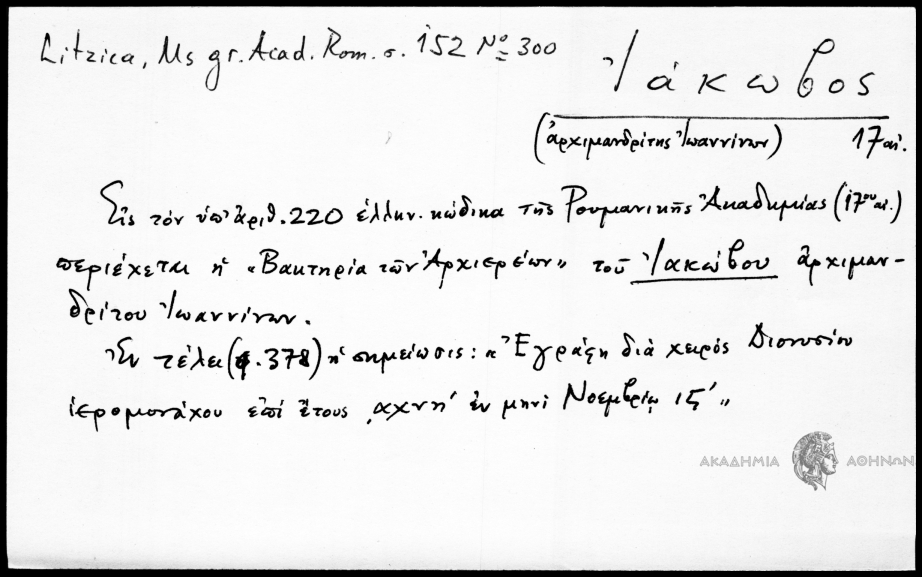 Litzica, Ms gr. Acad. Rom. σ. 152 Nο 300
Ἰάκωβος
(ἀρχιμανδρίτης Ἰωαννίνων) 17 αἰ.
Εἰς τὸν ὑπ' ἀριθ. 220 ἑλλην. κώδικα τῆς Ρουμανικῆς Ἀκαδημίας (17ου αἰ.)
περιέχεται ἡ «Βακτηρία τῶν Ἀρχιερέων» τοῦ Ἰακώβου ἀρχιμαν-
δρίτου Ἰωαννίνων.
Ἐν τέλει (φ. 378) ἡ σημείωσις: «Ἐγράφη διὰ χειρὸς Διονυσίου
ἱερομονάχου ἐπὶ ἔτους ͵αχνη' ἐν μηνὶ Νοεμβρίῳ ιζ'»
ΑΚΑΔΗΜΙΑ ΑΘΗΝΩΝ